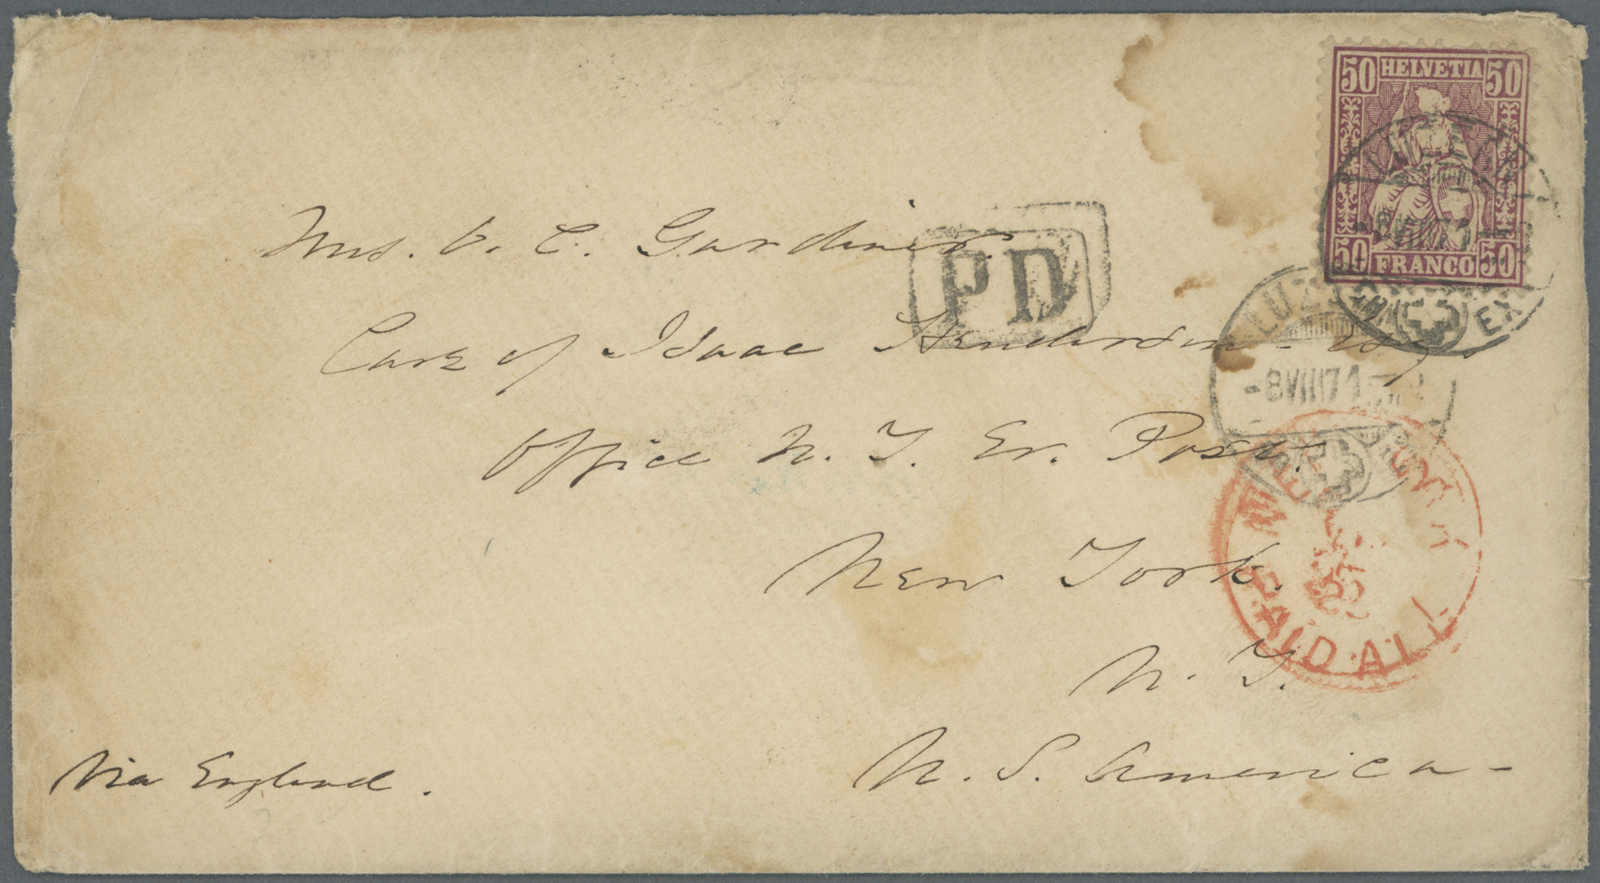 50 HELVETIA 50
50 FRANCO 50
Mrs. C. Gardiner.
PD
Care of Isaac Henderson - Esq.
LUZ
EX
-8VIII71
Office N. Y. Ev. Post.
NEW YORK
PAID ALL
New York.
N. Y.
Via England.
U. S. America -